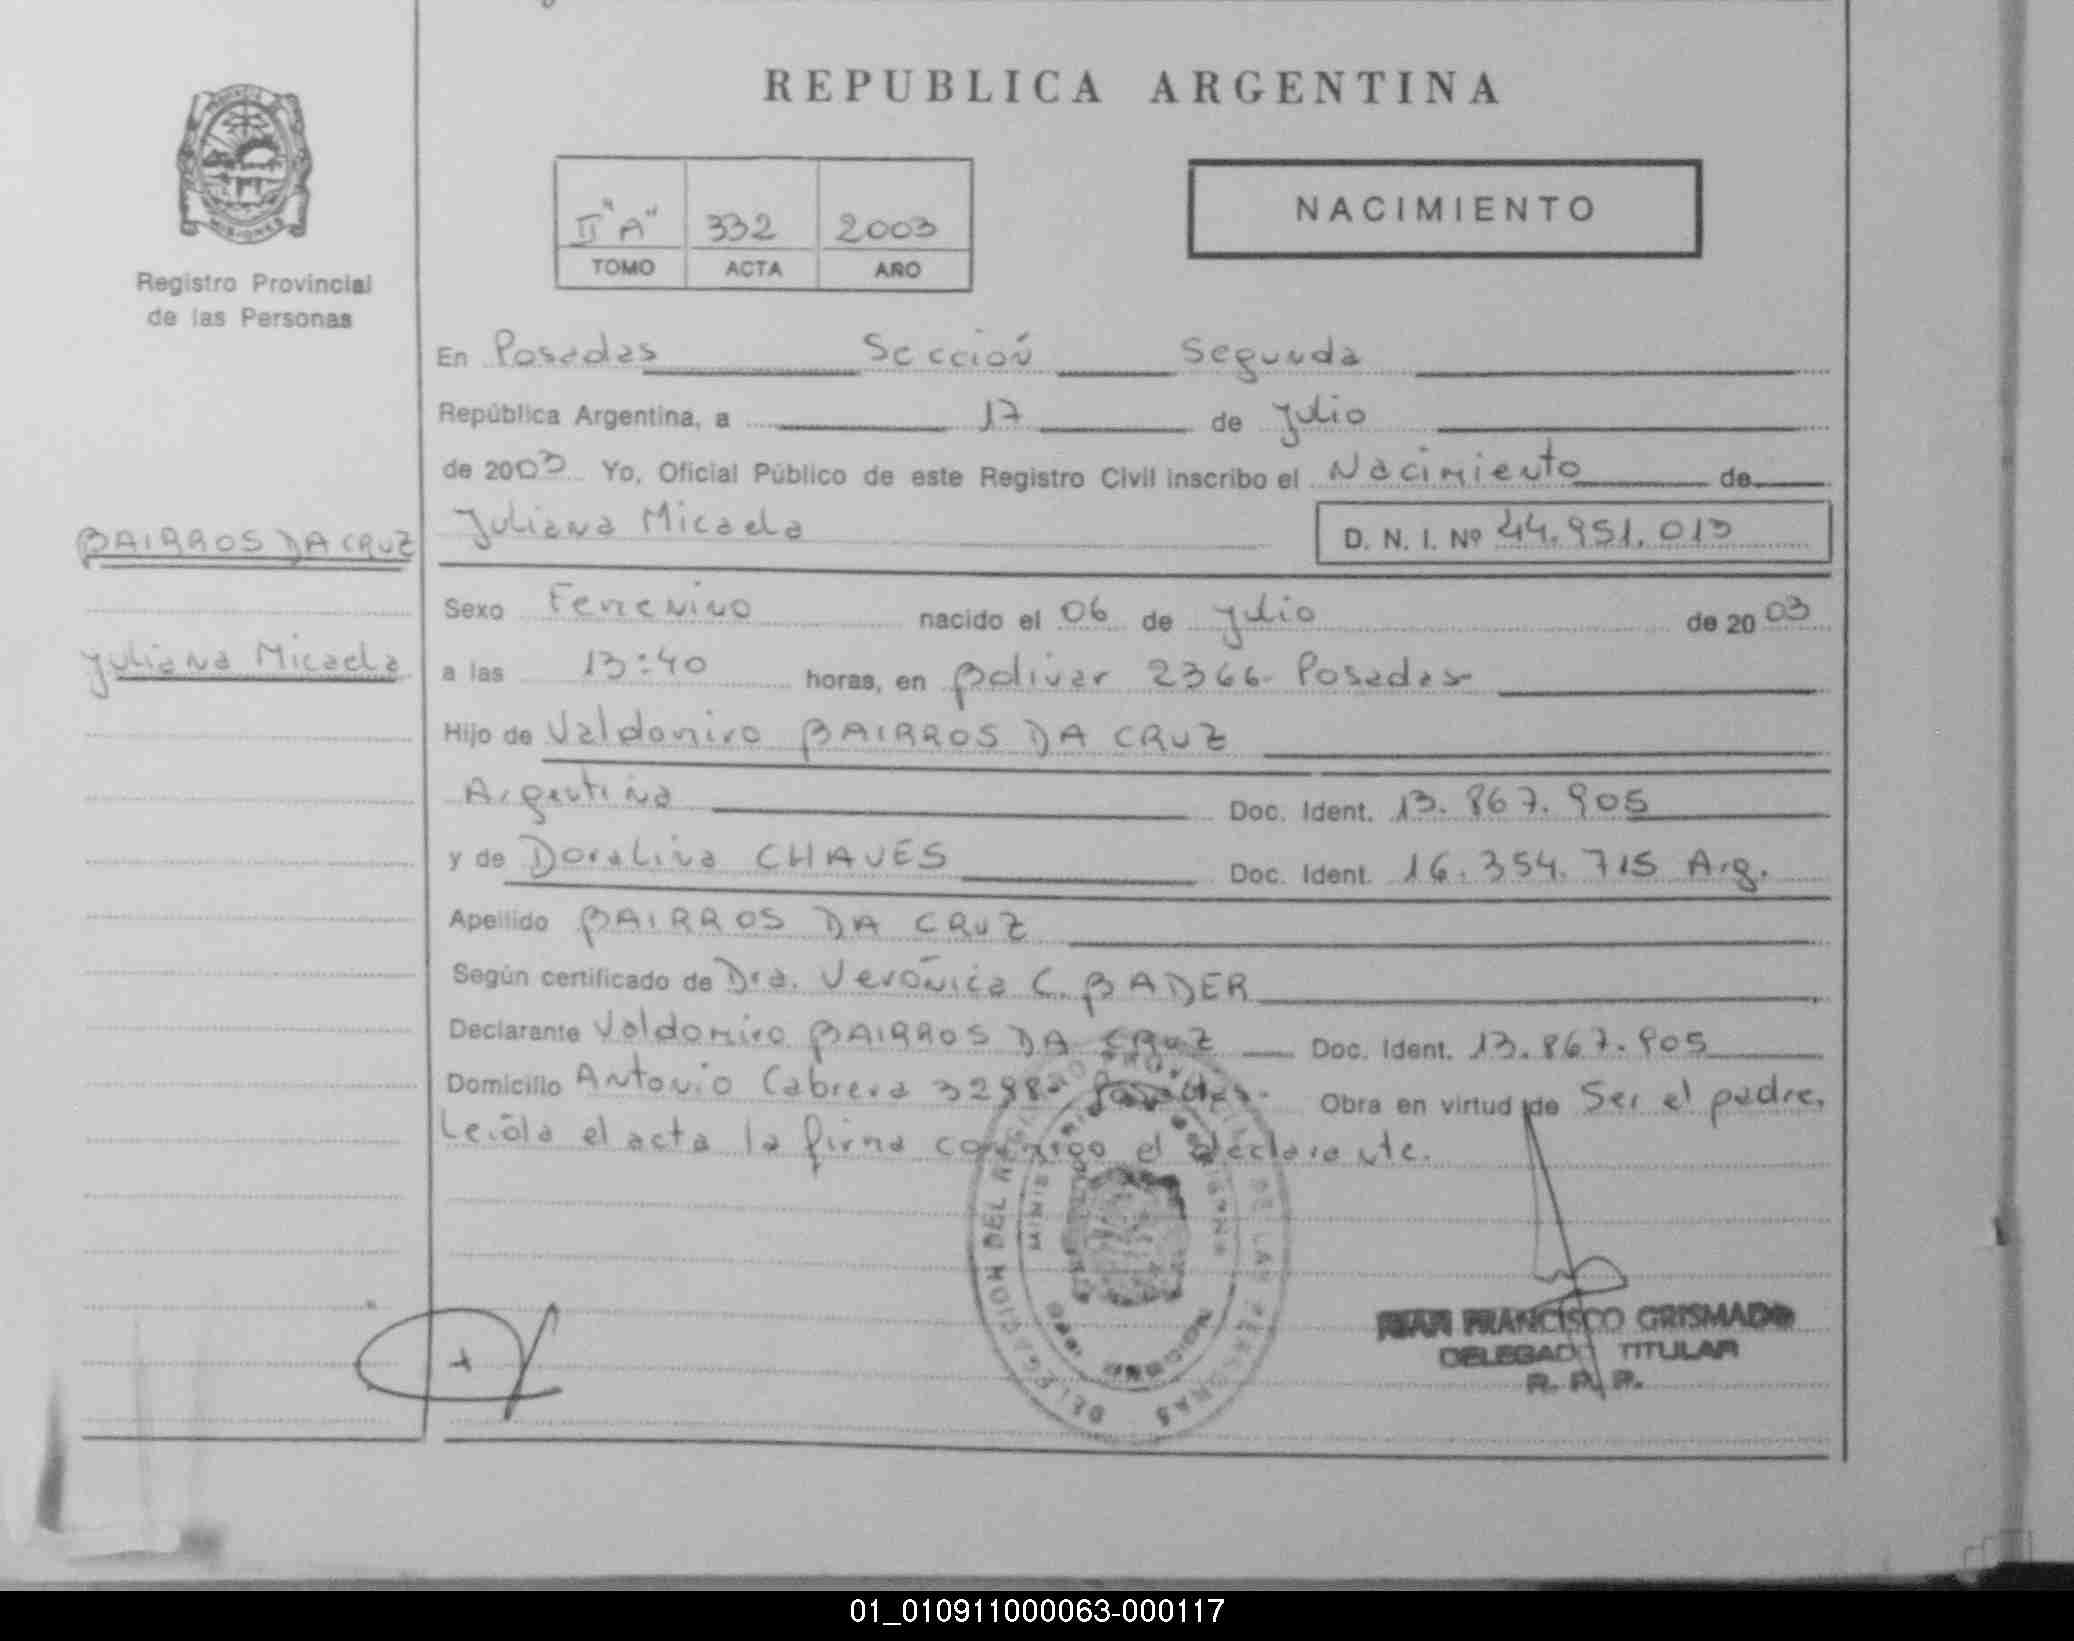 REPUBLICA ARGENTINA
PROVINCIA
MISIONES
Registro Provincial
de las Personas
II "A" 332 2003
TOMO ACTA AÑO
NACIMIENTO
En Posadas Sección Segunda
República Argentina, a 17 de Julio
de 2003 Yo, Oficial Público de este Registro Civil inscribo el Nacimiento de
BAIRROS DA CRUZ
Juliana Micaela D. N. I. Nº 44.951.013
Sexo Femenino nacido el 06 de Julio de 2003
Juliana Micaela
a las 13:40 horas, en Bolivar 2366- Posadas-
Hijo de Valdomiro BAIRROS DA CRUZ
Argentina Doc. Ident. 13.867.905
y de Doralina CHAVES Doc. Ident. 16.354.715 Arg.
Apellido BAIRROS DA CRUZ
Según certificado de Dra. Verónica C. BADER
Declarante Valdomiro BAIRROS DA CRUZ Doc. Ident. 13.867.905
Domicilio Antonio Cabrera 3298- Posadas- Obra en virtud de Ser el padre.
Leída el acta la firma conmigo el declarante.
DELEGACION DEL DE LAS PERSONAS
FRANCISCO GRISMADO
DELEGADO TITULAR
R. P. P.
01_010911000063-000117